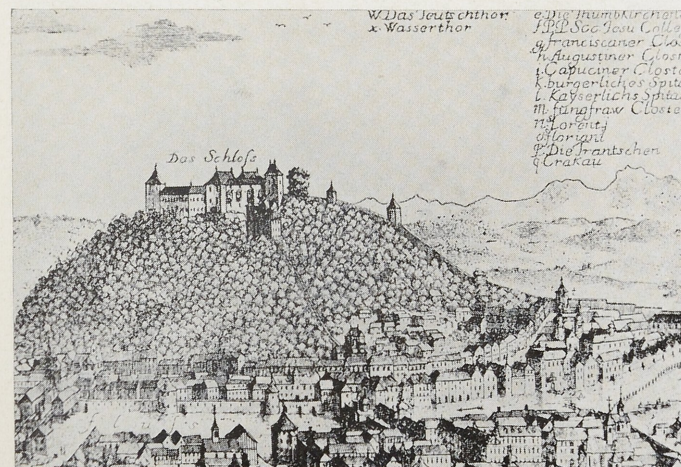 W. Das Teutschthor
x. Wasserthor
e. Die Thumbkirchen
f. P.P. Soc. Jesu Colle
g. franciscaner Clos
h. Augustiner Clost
i. Capuciner Closte
k. burgerliches Spita
l. Kayserlichs Spita
m. Jungfraw Closte
n. S. Lorentz
o. floriani
p. Die Trantschen
q. Crakau
Das Schloss